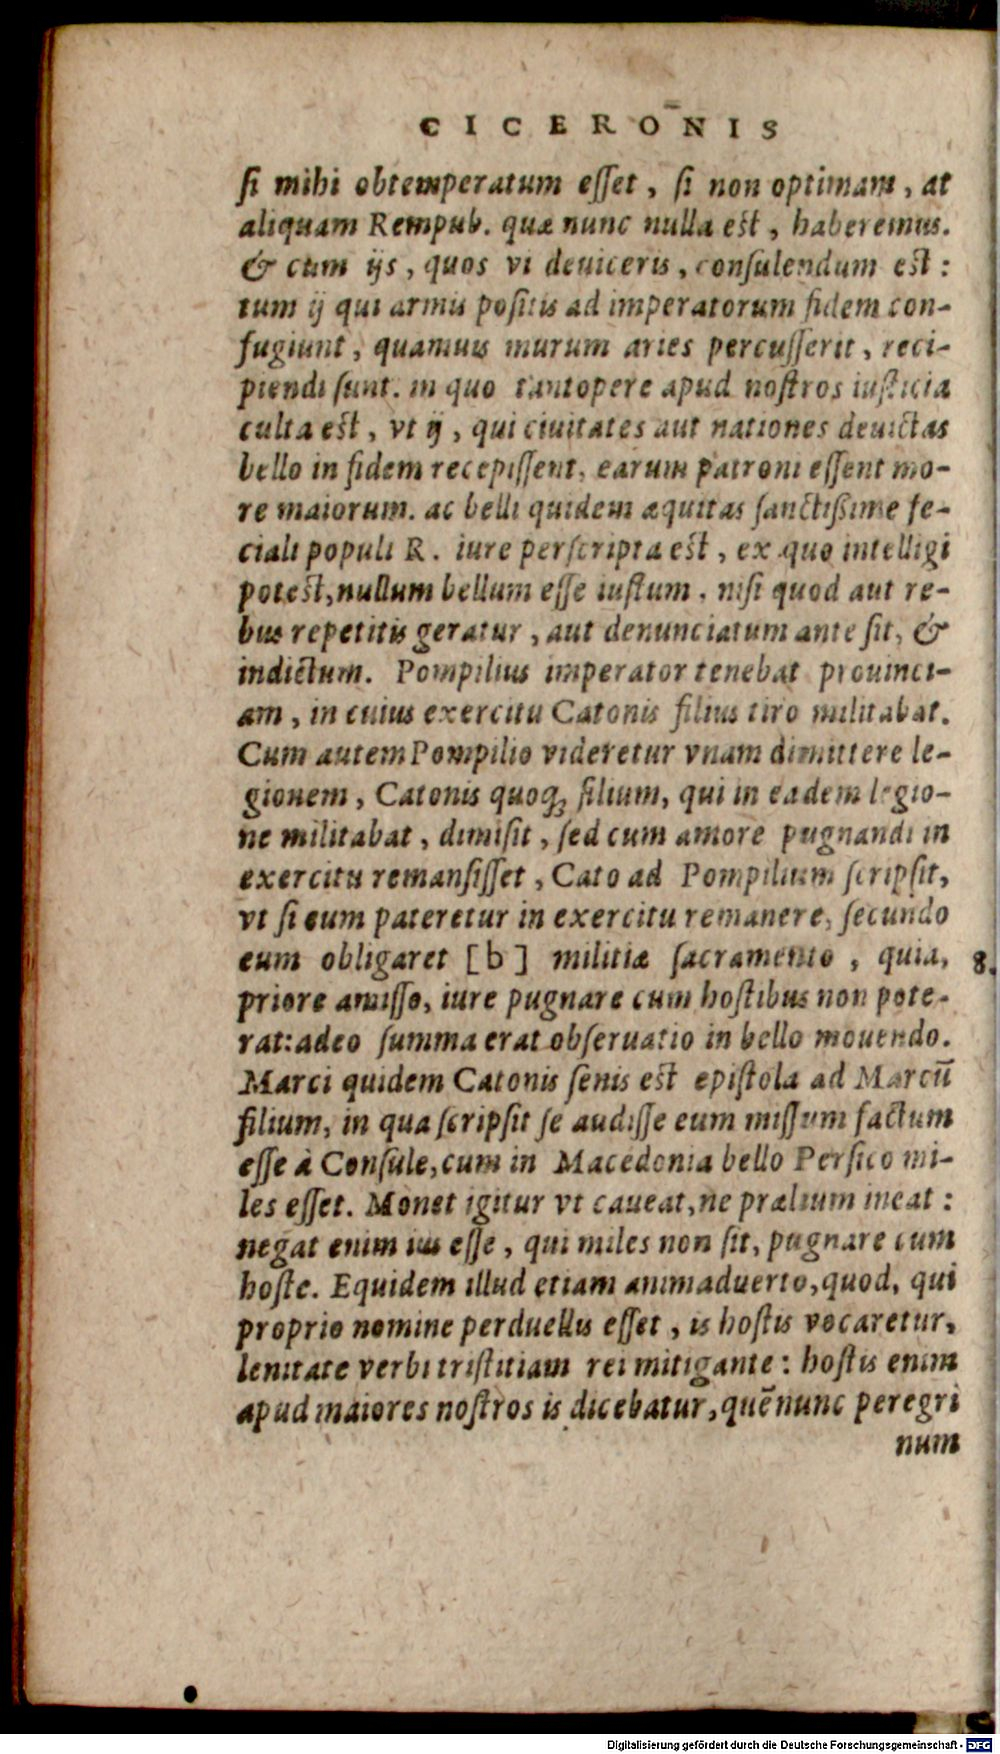 CICERONIS
ſi mihi obtemperatum eſſet, ſi non optimam, at
aliquam Rempub. quæ nunc nulla est, haberemus.
& cùm ijs, quos vi deuiceris, conſulendum est:
tum ij qui armis poſitis ad imperatorum fidem con-
fugiunt, quamuis murum aries percuſſerit, reci-
piendi ſunt. in quo tantopere apud noſtros iuſticia
culta est, vt ij, qui ciuitates aut nationes deuictas
bello in fidem recepiſſent, earum patroni eſſent mo-
re maiorum. ac belli quidem æquitas ſanctißime fe-
ciali populi R. iure perſcripta est, ex quo intelligi
potest, nullum bellum eſſe iuſtum, niſi quod aut re-
bus repetitis geratur, aut denunciatum ante ſit, &
indictum. Pompilius imperator tenebat prouinci-
am, in cuius exercitu Catonis filius tiro militabat.
Cum autem Pompilio videretur vnam dimittere le-
gionem, Catonis quoq; filium, qui in eadem legio-
ne militabat, dimiſit, ſed cum amore pugnandi in
exercitu remanſiſſet, Cato ad Pompilium ſcripſit,
vt ſi eum pateretur in exercitu remanere, ſecundo
eum obligaret [b] militiæ ſacramento, quia, 8.
priore amiſſo, iure pugnare cum hoſtibus non pote-
rat: adeo ſumma erat obſeruatio in bello mouendo.
Marci quidem Catonis ſenis est epiſtola ad Marcū
filium, in qua ſcripſit ſe audiſſe eum miſſum factum
eſſe à Conſule, cum in Macedonia bello Perſico mi-
les eſſet. Monet igitur vt caueat, ne prælium ineat:
negat enim ius eſſe, qui miles non ſit, pugnare cum
hoſte. Equidem illud etiam animaduerto, quod, qui
proprio nomine perduellis eſſet, is hoſtis vocaretur,
lenitate verbi triſtitiam rei mitigante: hoſtis enim
apud maiores noſtros is dicebatur, quē nunc peregri
num
Digitalisierung gefördert durch die Deutsche Forschungsgemeinschaft - DFG